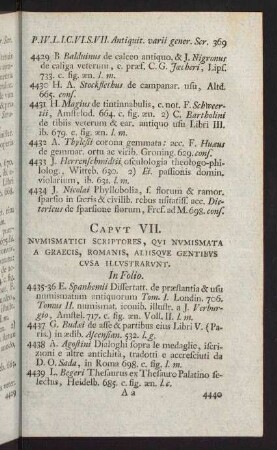 P.IV.L.I.C.VI.S.VII. Antiquit. varii gener. Scr. 369
4429 B Balduinus de calceo antiquo, & J. Nigronus
de caliga veterum, c. præf. C. G. Jœcheri, Lips.
733. c. fig. æn. l. m.
4430 H. A. Stockfletbus de campanar. usu, Altd.
665. conf.
4431 H. Magius de tintinnabulis, c. not. F. Schweer-
tii, Amstelod. 664. c. fig. æn. 2) C. Bartholini
de tibiis veterum & ear. antiquo usu Libri III.
ib. 679. c. fig. æn. l. m.
4432 A. Thylesii corona gemmata: acc. F. Hu-
œi de gemmar. ortu ac virib. Gruning. 629. conf.
4433 J. Herrenschmidtii, osculologia theologo-phi-
lolog., Witteb. 630. 2) Ej. passionis domin.
violarium, ib. 631. l. m.
4434 J. Nicolai Phyllobolia, s. florum & ramor.
sparsio in sacris & civilib. rebus usitatiss. acc. Die-
tericus de sparsione florum, Fref. ad M. 698. conf.
CAPVT VII.
NVMISMATICI SCRIPTORES, QVI NVMISMATA
A GRAECIS, ROMANIS, ALIISQVE GENTIBVS
CVSA ILLVSTRARVNT.
In Folio.
4435-36 E. Spanhemii Dissertatt. de præstantia & usu
numismatum antiquorum Tom. I. Londin. 706.
Tomus II. numismat. iconib. illustr. a J. Verbur-
gio, Amstel. 717. c. fig. æn. Voll. II. l. m.
4437 G. Budæi de asse & partibus eius Libri V. (Pa-
ris.) in ædib. Ascensian. 532. l. g.
4438 A. Agostini Dialoghi sopra le medaglie, iscri-
zioni e altre antichità, tradotti e accresciuti da
D. O. Sada, in Roma 698. c. fig. l. m.
4439 L. Begeri Thesaurus ex Thesauro Palatino se-
lectus, Heidelb. 685. c. fig. æn. l. c.
A a
4440